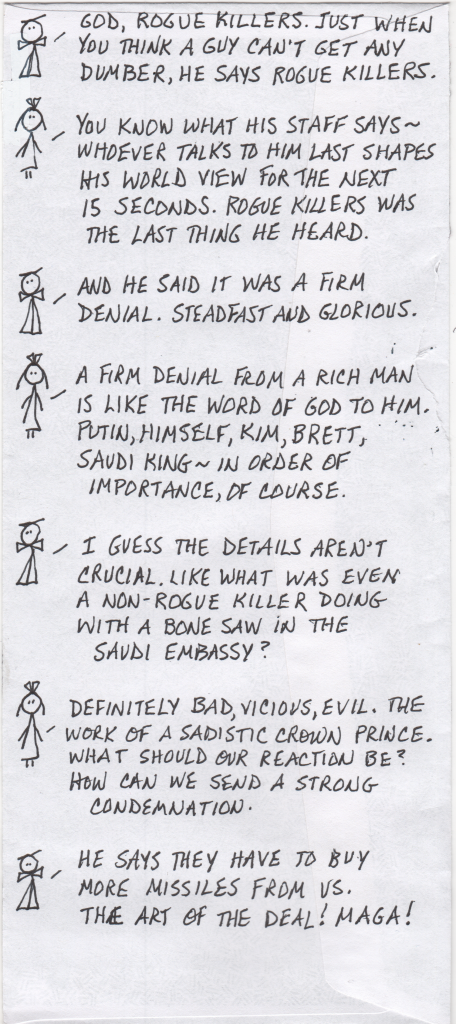 GOD, ROGUE KILLERS. JUST WHEN
YOU THINK A GUY CAN'T GET ANY
DUMBER, HE SAYS ROGUE KILLERS.
YOU KNOW WHAT HIS STAFF SAYS~
WHOEVER TALKS TO HIM LAST SHAPES
HIS WORLD VIEW FOR THE NEXT
15 SECONDS. ROGUE KILLERS WAS
THE LAST THING HE HEARD.
AND HE SAID IT WAS A FIRM
DENIAL. STEADFAST AND GLORIOUS.
A FIRM DENIAL FROM A RICH MAN
IS LIKE THE WORD OF GOD TO HIM.
PUTIN, HIMSELF, KIM, BRETT,
SAUDI KING~ IN ORDER OF
IMPORTANCE, OF COURSE.
I GUESS THE DETAILS AREN'T
CRUCIAL. LIKE WHAT WAS EVEN
A NON-ROGUE KILLER DOING
WITH A BONE SAW IN THE
SAUDI EMBASSY?
DEFINITELY BAD, VICIOUS, EVIL. THE
WORK OF A SADISTIC CROWN PRINCE.
WHAT SHOULD OUR REACTION BE?
HOW CAN WE SEND A STRONG
CONDEMNATION.
HE SAYS THEY HAVE TO BUY
MORE MISSILES FROM US.
THE ART OF THE DEAL! MAGA!